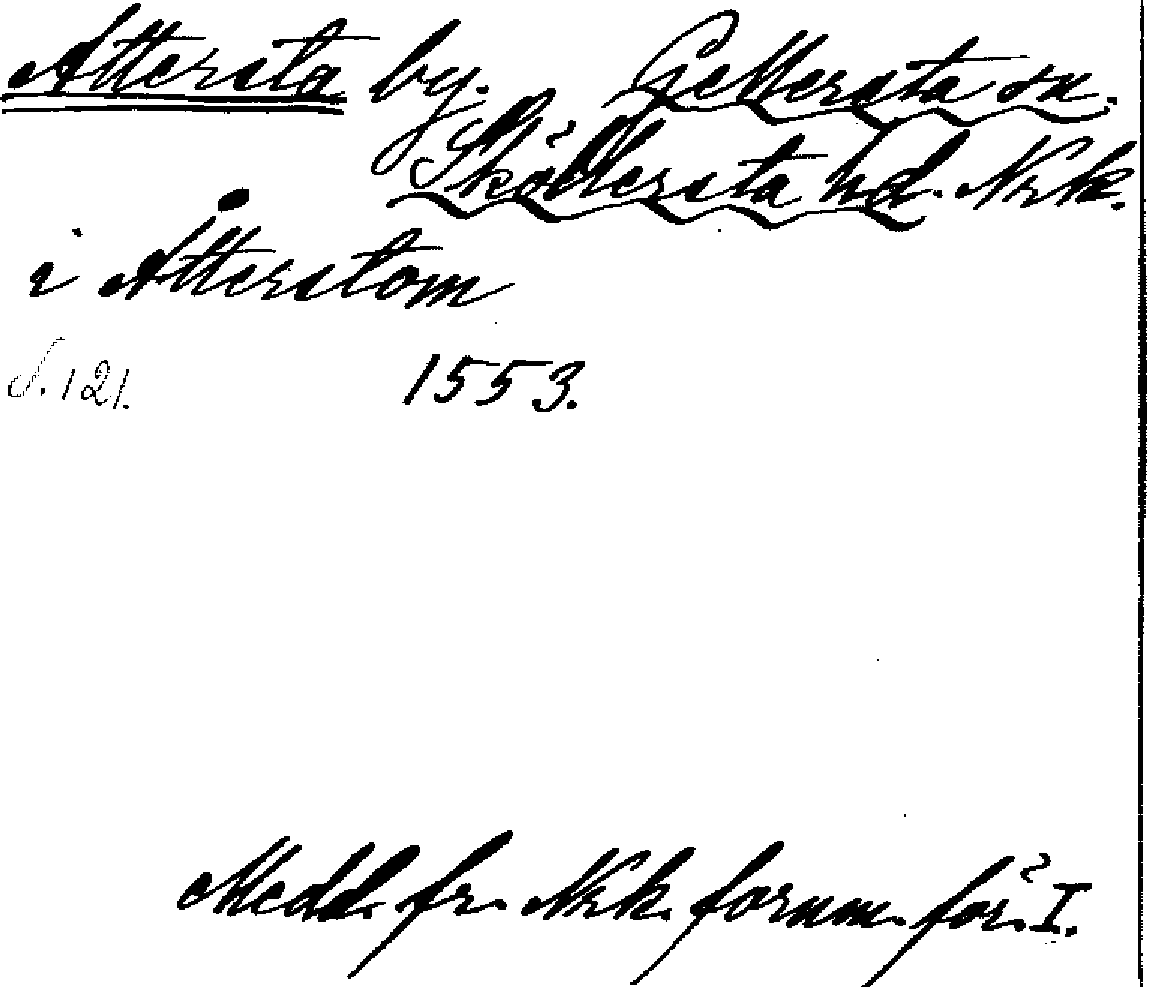 Attersta by. Gellersta sn.
Sköllersta hd. Nrk.
i Åtterstom
S. 121. 1553.
Medd. fr. Nrk. fornm. för. I.